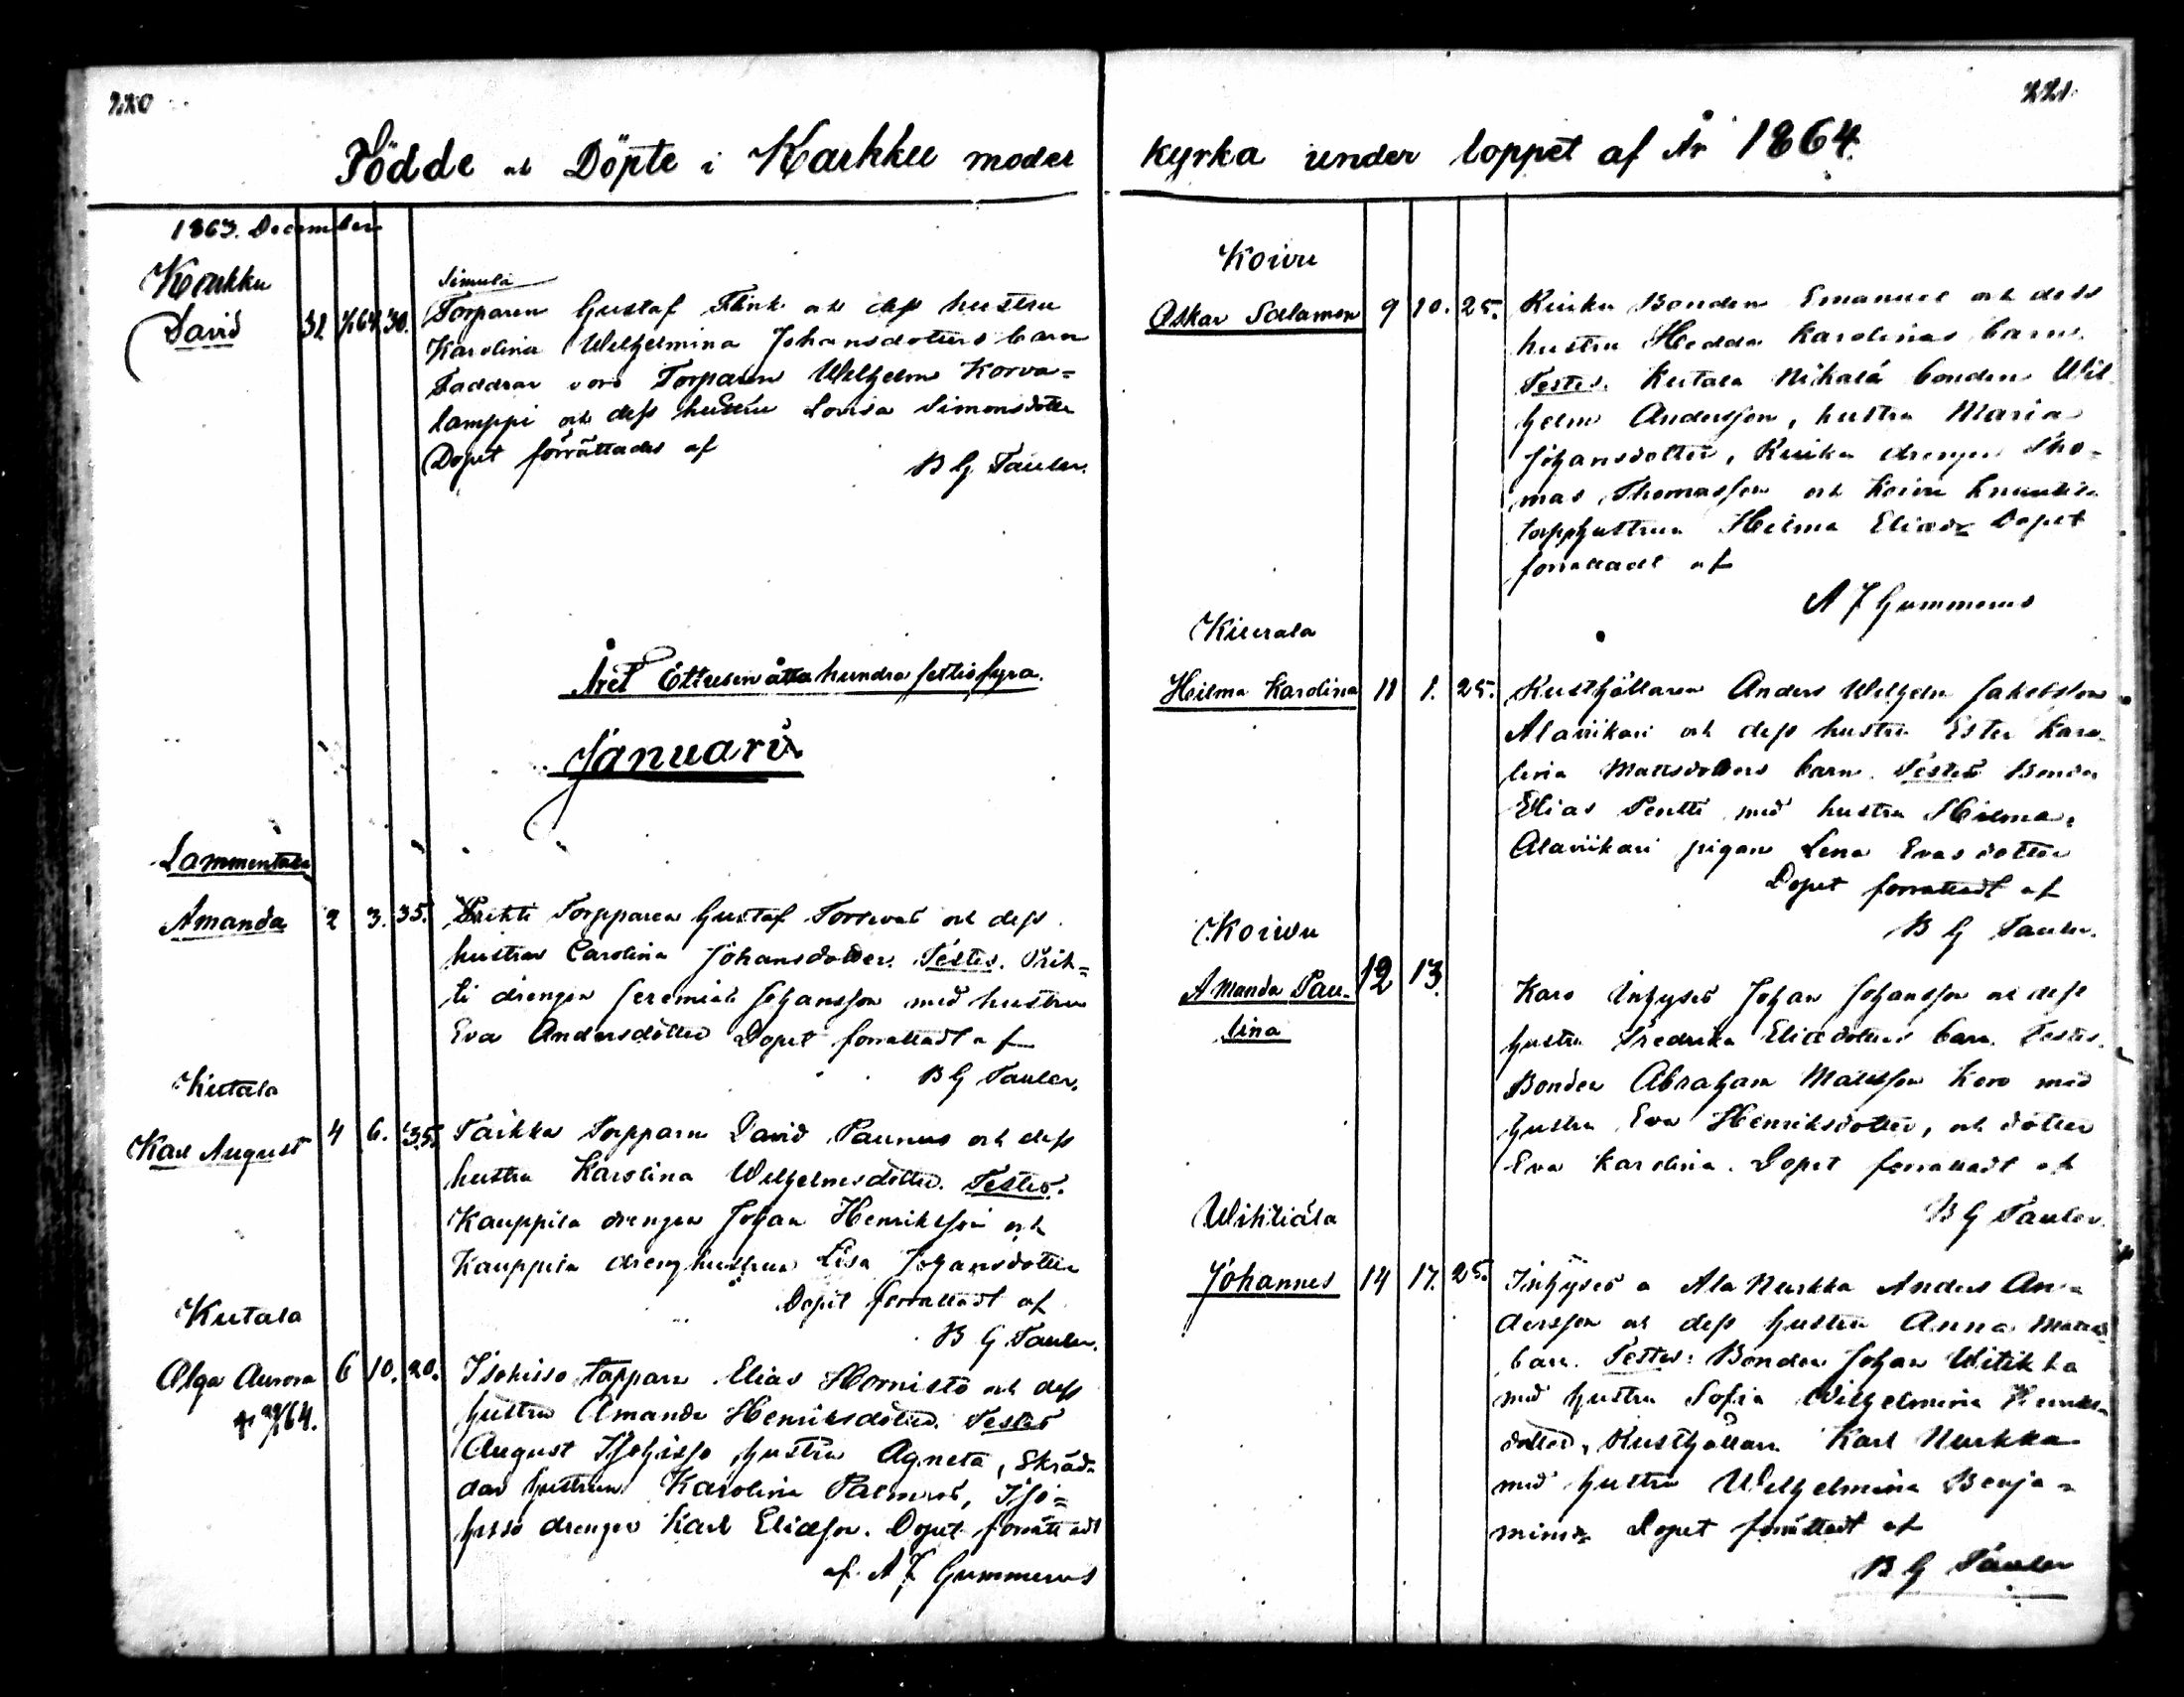 220
Födde och Döpte i Karkku moder
1863. December
Karkku
David 31 1/64. 30.
Simula
Torparen Gustaf Flink och dess hustru
Karolina Wilhelmina Johansdotters barn
Faddrar voro Torparen Wilhelm Korva=
lamppi och dess hustru Lovisa Simonsdotter
Dopet förrättades af
B G Tauler.
Året Ettusen åtta hundra sextiofyra.
Januari
Lammentaka
Amanda 2 3. 35.
Prihti Torpparen Gustaf Torrvas och dess
hustrus Carolina Johansdotter. Testes. Prih=
ti drengen Jeremias Johansson med hustru
Eva Andersdotter Dopet forrattadt af
B G Tauler.
Kutala
Karl August 4 6. 35.
Torpparn David Paunus och dess
hustru Karolina Wilhelmsdotter. Testes.
Kauppila drengen Johan Henriksson och
Kauppila dreng hustrun Lisa Johansdotter
Dopet forrattadt af
B G Tauler.
Kutala
Olga Aurora 6 10. 20.
/64.
Isohiiso torparn Elias Hornisto och dess
hustru Amanda Henriksdotter. Testes
August Isohiiso hustru Agneta, Skräd=
dar hustrun Karolina Palmros, Iso=
hiiso drengen Karl Eliasson. Dopet forrättadt
af A J Gummerus
221.
kyrka under loppet af År 1864.
Koivu
Oskar Salamon 9 10. 25.
Bonden Emanuel och dess
hustru Hedda Karolinas barn.
Testes. Kutala Nihalá bonden Wil
helm Andersson, hustru Maria
Johansdotter, drengen Tho=
mas Thomasson och Koivu Knuutila
torphustrun Hilma Eliasdr Dopet
forrattadt af
A J Gummerus
Kiurala
Hilma Karolina 11 1. 25.
Rusthållaren Anders Wilhelm Jakobsson
Alaviikari och dess hustru Ester Karo
lina Mattsdotters barn. Testes Bonden
Elias Pentti med hustru Hilma,
Alaviikari pigan Lena Evasdotter
Dopet forrattadt af
B G Tauler.
Koivu
Amanda Pau- 12 13.
lina
Karo Inhyses Johan Johansson och dess
hustru Fredrika Eliedotters barn. Testes.
Bonden Abraham Mattsson Karo med
hustru Eva Henriksdotter, och dotter
Eva Karolina. Dopet forrattadt af
B G Tauler.
Wihtiälä
Johannes 14 17. 25.
Inhyses a Ala Nurkka Anders An=
dersson och dess hustru Anna
barn. Testes: Bonden Johan Witikka
med hustru Sofia Wilhelmina Henriks
dotter, Rusthållarn Karl Nurkka
med hustru Wilhelmina Benja=
minsdr Dopet forrättadt af
B G Tauler